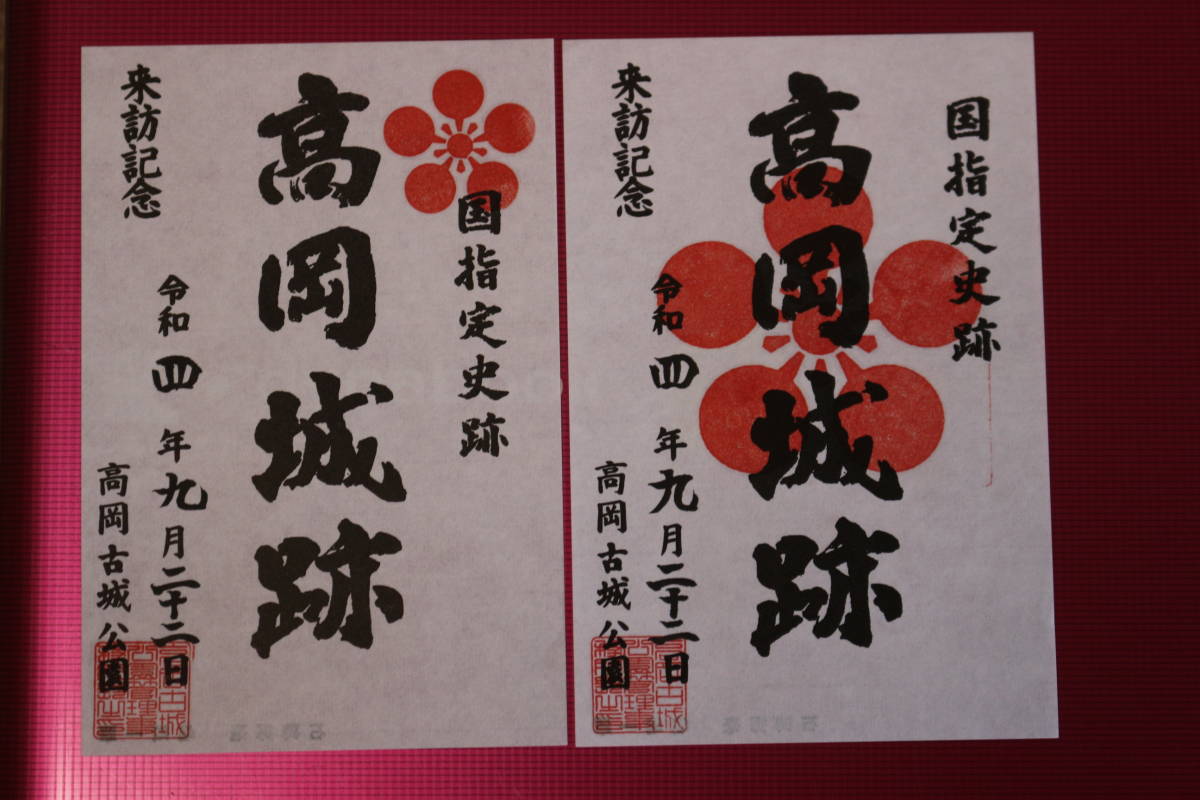 国指定史跡
高岡城跡
来訪記念
令和四年九月二十二日
高岡古城公園
国指定史跡
高岡城跡
来訪記念
令和四年九月二十二日
高岡古城公園